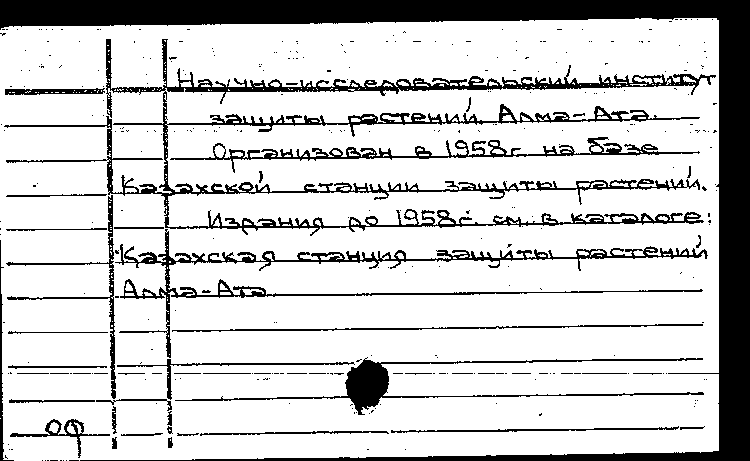 Научно-исследовательский институт
защиты растений. Алма-Ата.
Организован в 1958г. на базе
Казахской станции защиты растений.
Издания до 1958г. см. в каталоге:
Казахская станция защиты растений
Алма-Ата